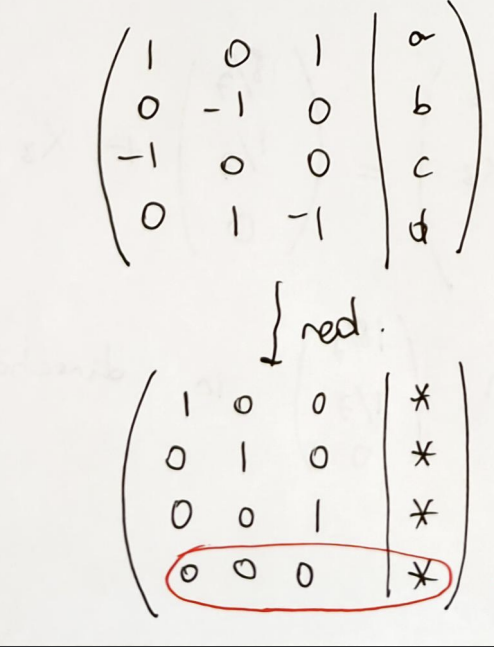 1 0 1 | a
0 -1 0 | b
-1 0 0 | c
0 1 -1 | d
↓ red.
1 0 0 | *
0 1 0 | *
0 0 1 | *
0 0 0 | *